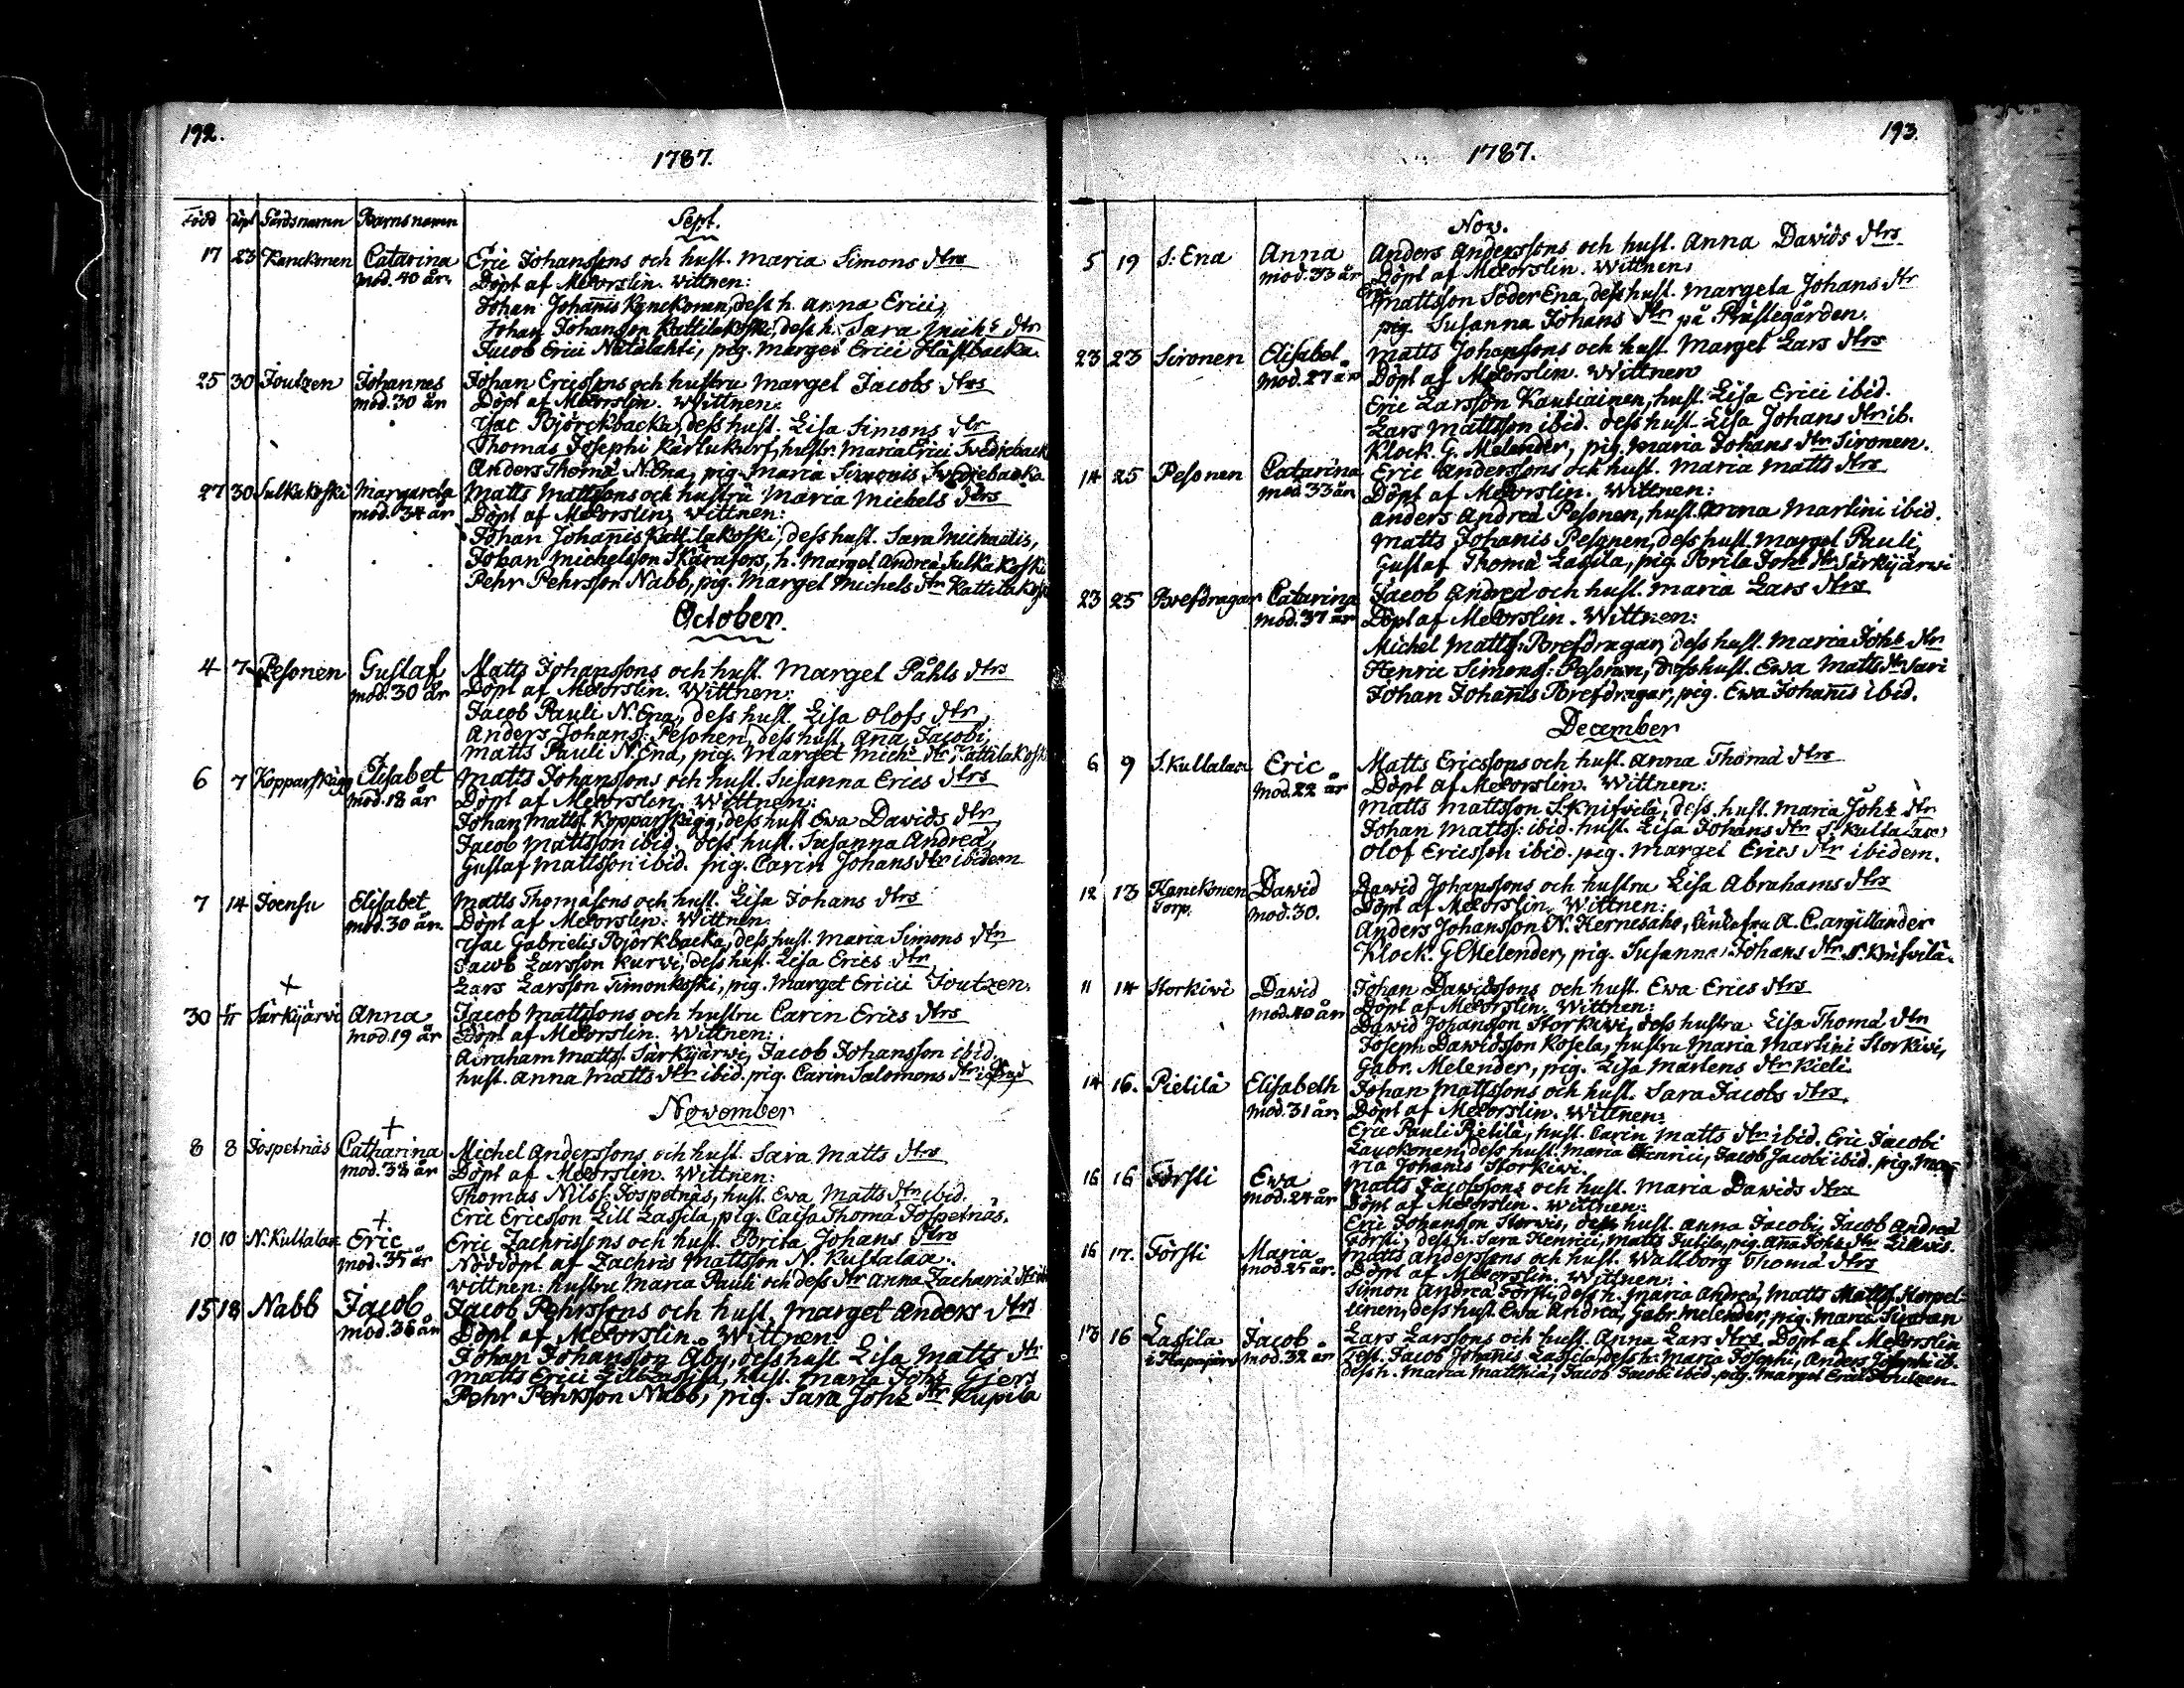 192.
1787.
Född Döpt Gårdsnamn Barnsnamn
Sept.
17 23 Kanckonen Catarina Eric Johanssons och hust. Maria Simons dtrs
mod. 40 år. Döpt af Meorslin. Wittnen:
Johan Johanis Kanckonen, dess h. Anna Erici,
Johan Johansson Kattilakoski dess h. Sara Michs dtr
Jacob Erici Nätälahti, pig. Marget Erici Hästbacka.
25 30 Joutzen Johannes Johan Ericssons och hustru Marget Jacobs dtrs
mod. 30 år Döpt af Meorslin. Wittnen:
Isac Björckbacka, dess hust. Lisa Simons dtr
Thomas Josephi Kärtukurf, hustr. Maria Erici Svedjeback
Anders Thomä N. Ena, pig. Maria Simonis Svedjebacka
27 30 Julkakoski Margareta Matts Mattssons och hustru Maria Michels dtrs
mod. 34 år Döpt af Meorslin, Wittnen:
Johan Johanis Kattilakoski, dess hust. Sara Michaelis,
Johan Michelsson Skärafors, h. Marget Andreä Julkakoski
Pehr Pehrsson Nabb, pig. Marget Michels dtr Kattilakoski
October.
4 7 Pesonen Gustaf Matts Johanssons och hust. Marget Påhls dtrs
mod. 30 år Döpt af Meorslin. Wittnen:
Jacob Pauli N. Ena, dess hust. Lisa Olofs dtr,
Anders Johans: Pesonen, dess hust. Ana Jacobi,
Matts Pauli N. Ena, pig. Marget Michs dtr Kattilakoski
6 7 Kopparskägg Elisabet Matts Johanssons och hust. Susanna Erics dtrs
mod. 18 år Döpt af Meorslin. Wittnen:
Johan Matts: Kopparskägg, dess hust Ewa Davids dtr,
Jacob Mattsson ibid. dess hust. Susanna Andreä,
Gustaf Mattsson ibid. pig. Carin Johans dtr ibidem
7 14 Joensu Elisabet Matts Thomasons och hust. Lisa Johans dtrs
mod. 30 år. Döpt af Meorslin. Wittnen:
Isac Gabrielis Björkbacka, dess hust. Maria Simons dtr
Jacob Larsson Kurvi, dess hust. Lisa Erics dtr
Lars Larsson Timonkoski, pig. Marget Ericii Joutzen.
+
30 1/11 Särkijärvi Anna Jacob Mattssons och hustru Carin Erics dtrs
mod. 19 år Döpt af Meorslin. Wittnen:
Abraham Matts: Särkijärvi, Jacob Johansson ibid
hust. Anna Matts dtr ibid. pig. Carin Salomons dtr ibid
November
+
8 8 Jospetnäs Catharina Michel Anderssons och hust. Sara Matts dtrs
mod. 38 år Döpt af Meorslin. Wittnen:
Thomas Nils: Jospetnäs, hust. Ewa Matts dtr ibid.
Eric Ericsson Lill Lassila, pig. Caisa Thomä Jospetnäs.
+
10 10 N. Kultalax Eric Eric Zachrissons och hust. Brita Johans dtrs
mod. 35 år Nöddöpt af Zachris Mattsson N. Kultalax.
Wittnen: hustru Maria Pauli och dess dtr Anna Zachariä
15 18 Nabb Jacob Jacob Pehrssons och hust. Marget Anders dtrs
mod. 36 år Döpt af Meorslin. Wittnen:
Johan Johansson Åby, dess hust Lisa Matts dtr
Matts Erici Lill Lassila, hust. Maria Johs Gjers
Pehr Pehrsson Nabb, pig. Sara Johs dtr Kupila
193.
1787.
Nov.
5 19 S. Ena Anna Anders Anderssons och hust. Anna Davids dtrs
mod. 33 år Döpt af Meorslin. Wittnen:
Eric Mattsson Söder Ena, dess hust. Margeta Johans dtr
pig. Susanna Johans dtr på Prästegården.
23 23 Sironen Elisabet Matts Johanssons och hust. Marget Lars dtrs
mod. 27 år Döpt af Meorslin. Wittnen
Eric Larsson Kautiainen, hust. Lisa Erici ibid.
Lars Mattsson ibid. dess hust. Lisa Johans dtr ib.
Klock. G. Melender, pig. Maria Johans dtr Sironen.
14 25 Pesonen Catarina Eric Anderssons och hust. Maria Matts dtrs
mod. 33 år Döpt af Meorslin. Wittnen:
Anders Andreä Pesonen, hust. Anna Martini ibid.
Matts Johanis Pesonen, dess hust. Marget Pauli,
Gustaf Thomä Lassila, pig. Brita Johs dtr Särkijärvi
23 25 Brefdragar Catarina Jacob Andreä och hust. Maria Lars dtrs
mod. 37 år Döpt af Meorslin. Wittnen:
Michel Matts: Brefdragar, dess hust. Maria Johs dtr
Henric Simons: Pesonen, dess hust. Ewa Matts dtr Sari
Johan Johanis Brefdragar, pig. Ewa Johanis ibid.
December
6 9 S. Kultalax Eric Matts Ericssons och hust. Anna Thomä dtrs
mod. 22 år Döpt af Meorslin. Wittnen:
Matts Mattsson S. Knifvilä, dess hust. Maria Johs dtr
Johan Matts: ibid. hust. Lisa Johans dtr S. Kultalax,
Olof Ericsson ibid. pig. Marget Erics dtr ibidem.
12 13 Kanckonen David David Johanssons och hustru Lisa Abrahams dtrs
Torp. mod. 30. Döpt af Meorslin. Wittnen:
Anders Johansson N. Hernesaho, Enkefru A. C. Argillander
Klock. G Melender, pig. Susanna Johans dtr S. Knifvilä.
11 14 Storkivi David Johan Davidssons och hust. Ewa Erics dtrs
mod. 40 år Döpt af Meorslin. Wittnen:
David Johansson Storkivi, dess hustru Lisa Thomä dtr
Joseph Davidsson Kosela, hustru Maria Martini Storkivi,
Gabr. Melender, pig. Lisa Mårtens dtr Kieli.
14 16. Pietilä Elisabeth Johan Mattssons och hust. Sara Jacobs dtrs.
mod. 31 år. Döpt af Meorslin. Wittnen:
Eric Pauli Pietilä, hust. Carin Matts dtr ibid. Eric Jacobi
Lauckonen, dess hust. Maria Henrici, Jacob Jacobi ibid. pig. Ma
ria Johanis Storkivi.
16 16 Försti Ewa Matts Jacobssons och hust. Maria Davids dtrs
mod. 24 år Döpt af Meorslin. Wittnen:
Eric Johansson Storvis, dess hust. Anna Jacobi, Jacob Andreä
Försti, dess h. Sara Henrici, Matts Jutila, pig. Ana Johs dtr Lillvis.
16 17. Försti Maria Matts Anderssons och hust. Wallborg Thomä dtrs
mod. 25 år. Döpt af Meorslin. Wittnen:
Simon Andreä Försti, dess h. Maria Andreä, Matts Matts: Horpel-
linen, dess hust. Ewa Andreä, Gabr. Melender, pig. Maria
13 16 Lassila Jacob Lars Larssons och hust. Anna Lars dtrs. Döpt af Meorslin
i Haapajärvi mod. 32 år Test. Jacob Johanis Lassila, dess h. Maria Josephi, Anders Josephi ib.
dess h. Maria Matthiä, Jacob Jacobi ibid. pig. Marget Erici Joutzen.